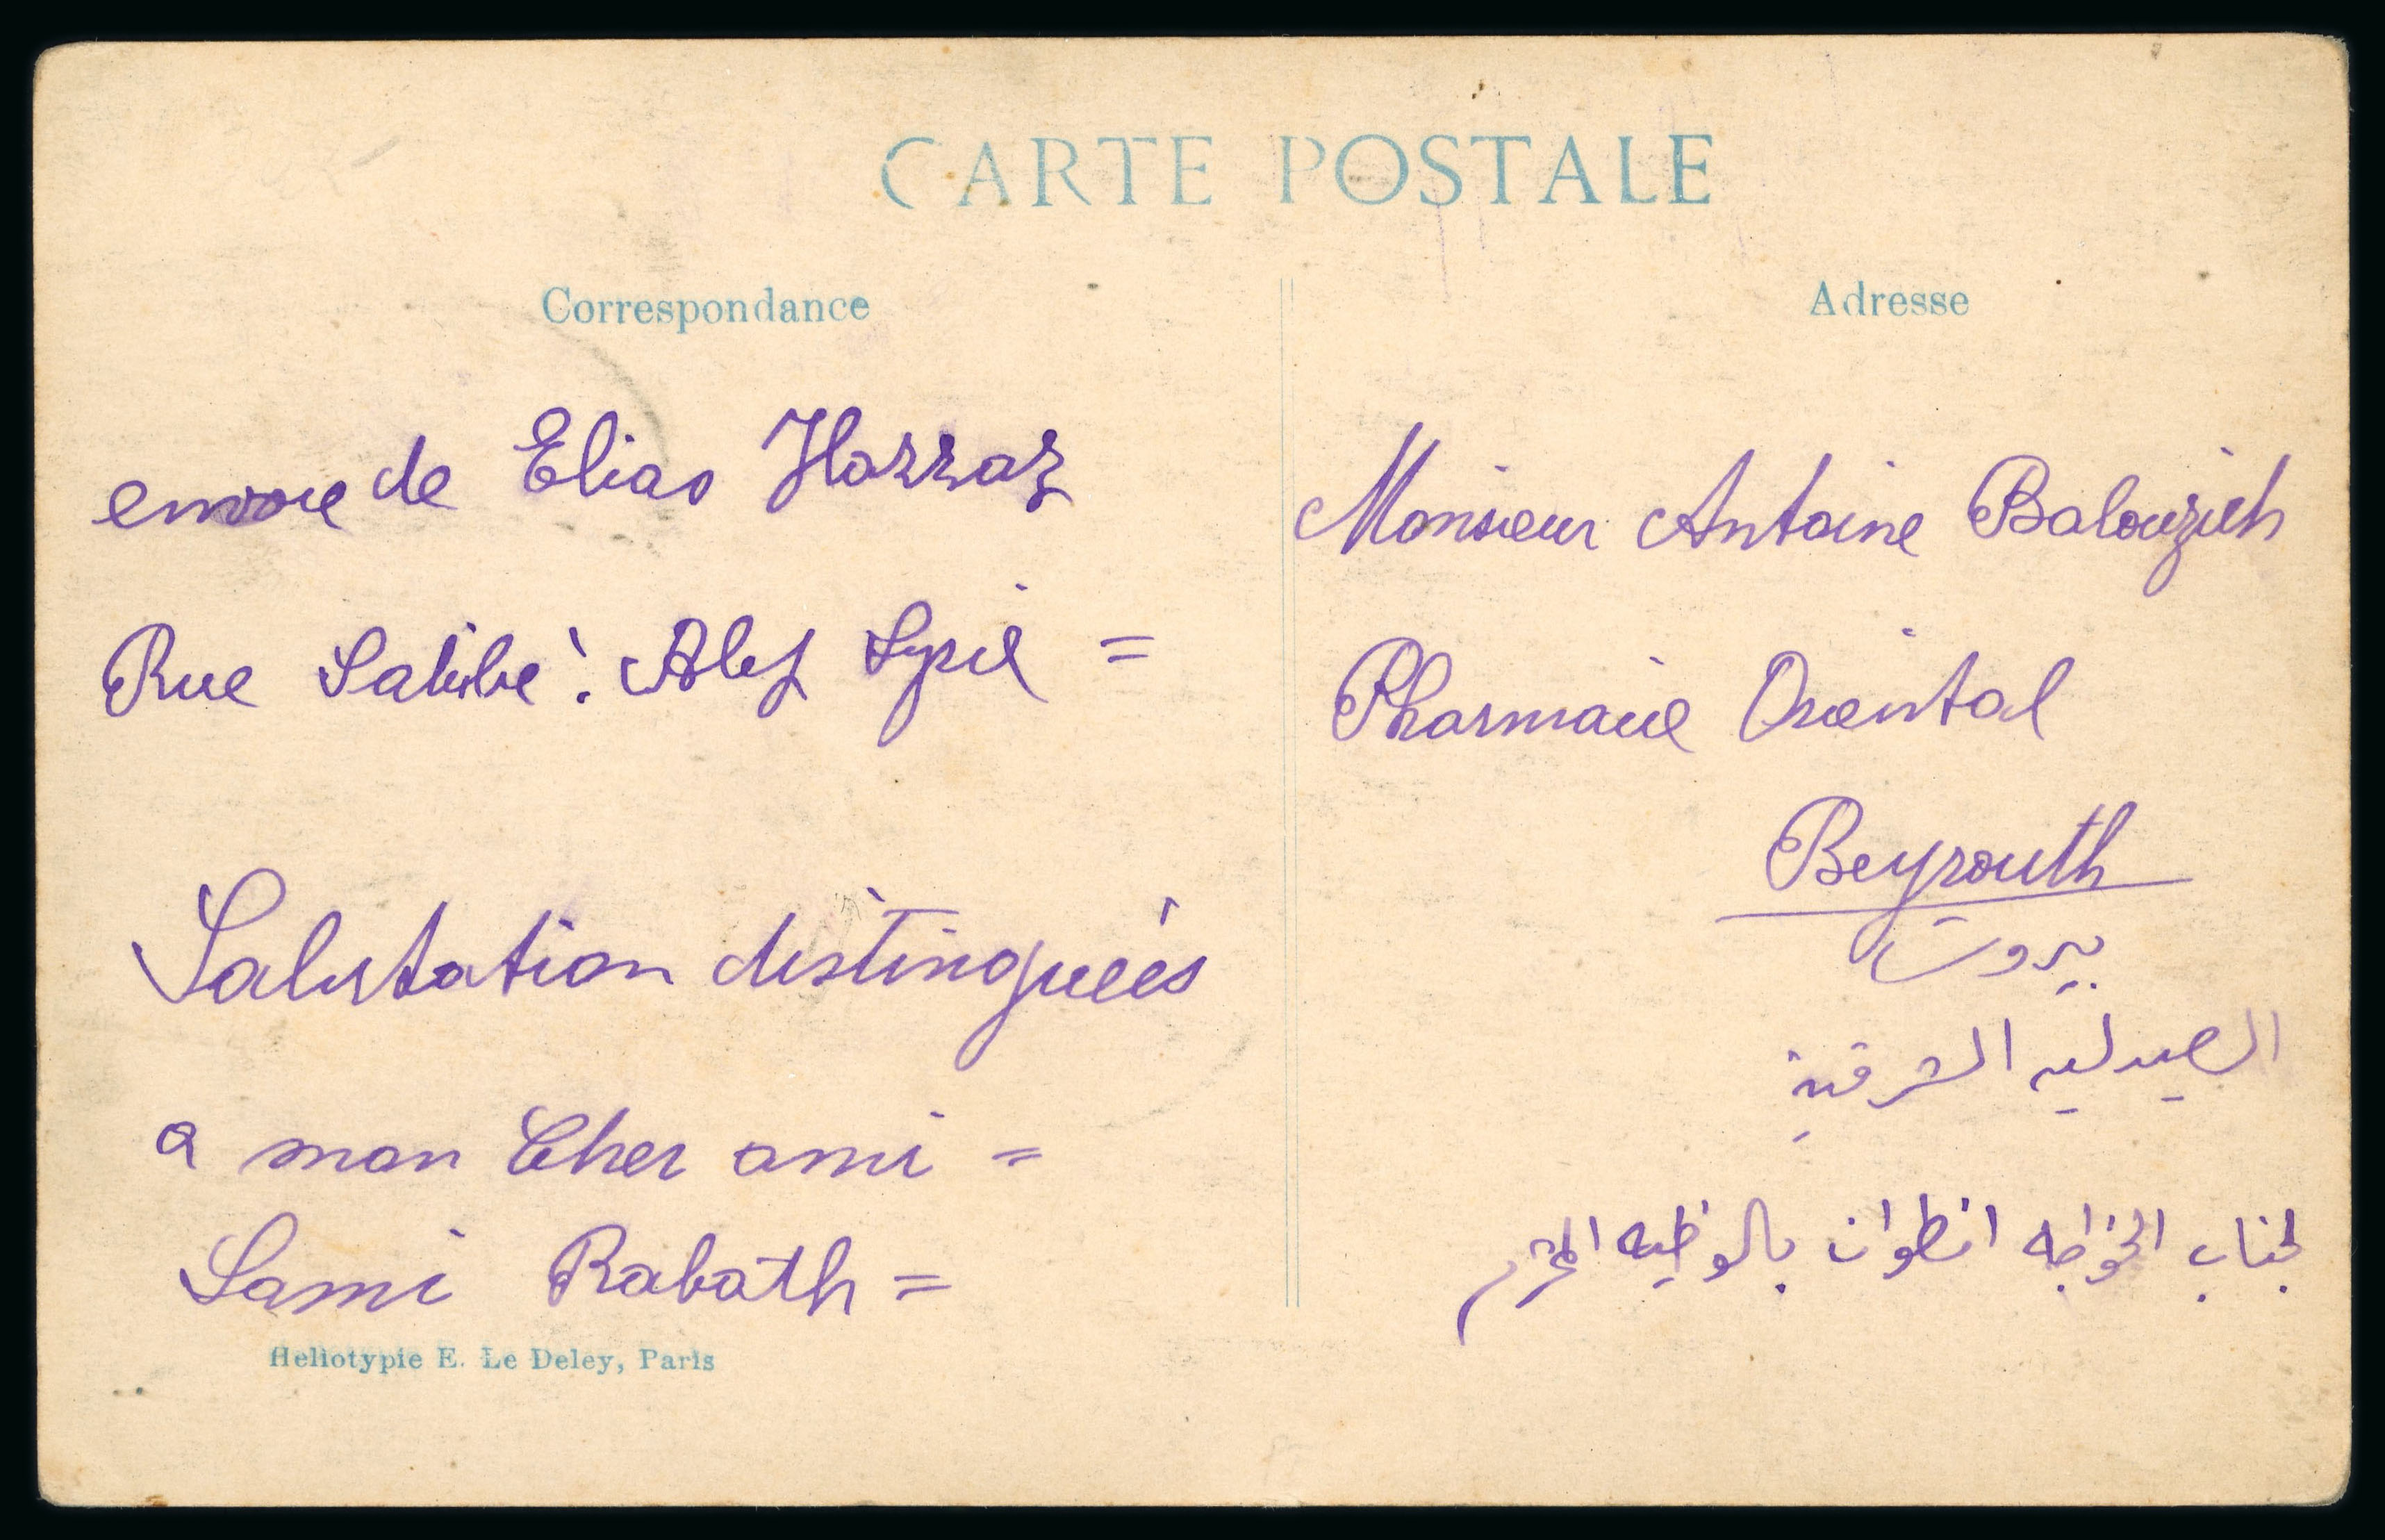 CARTE POSTALE
Correspondance
envoie de Elias Hazzaz
Rue Salibe! Alep Syrie =
Salutation distinguées
a mon Cher ami =
Sami Rabath =
Heliotypie E. Le Deley, Paris
Adresse
Monsieur Antoine Balouzieh
Pharmacie Oriental
Beyrouth
بيروت
الصيدليه الشرقية
لجناب الخواجه انطوان بالوظيه المحترم